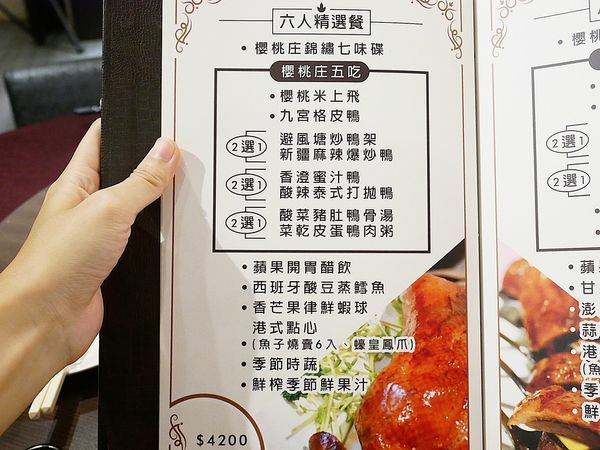 六人精選餐
• 櫻桃庄錦繡七味碟
櫻桃庄五吃
• 櫻桃米上飛
• 九宮格皮鴨
2選1
避風塘炒鴨架
新疆麻辣爆炒鴨
2選1
香澄蜜汁鴨
酸辣泰式打拋鴨
2選1
酸菜豬肚鴨骨湯
菜乾皮蛋鴨肉粥
• 蘋果開胃醋飲
• 西班牙酸豆蒸鱈魚
• 香芒果律鮮蝦球
港式點心
• (魚子燒賣6入、蠔皇鳳爪)
• 季節時蔬
• 鮮榨季節鮮果汁
$4200
• 櫻桃
2選1
2選1
• 蘋
• 甘
• 澎
• 蒜
港
(魚
• 季
• 鮮